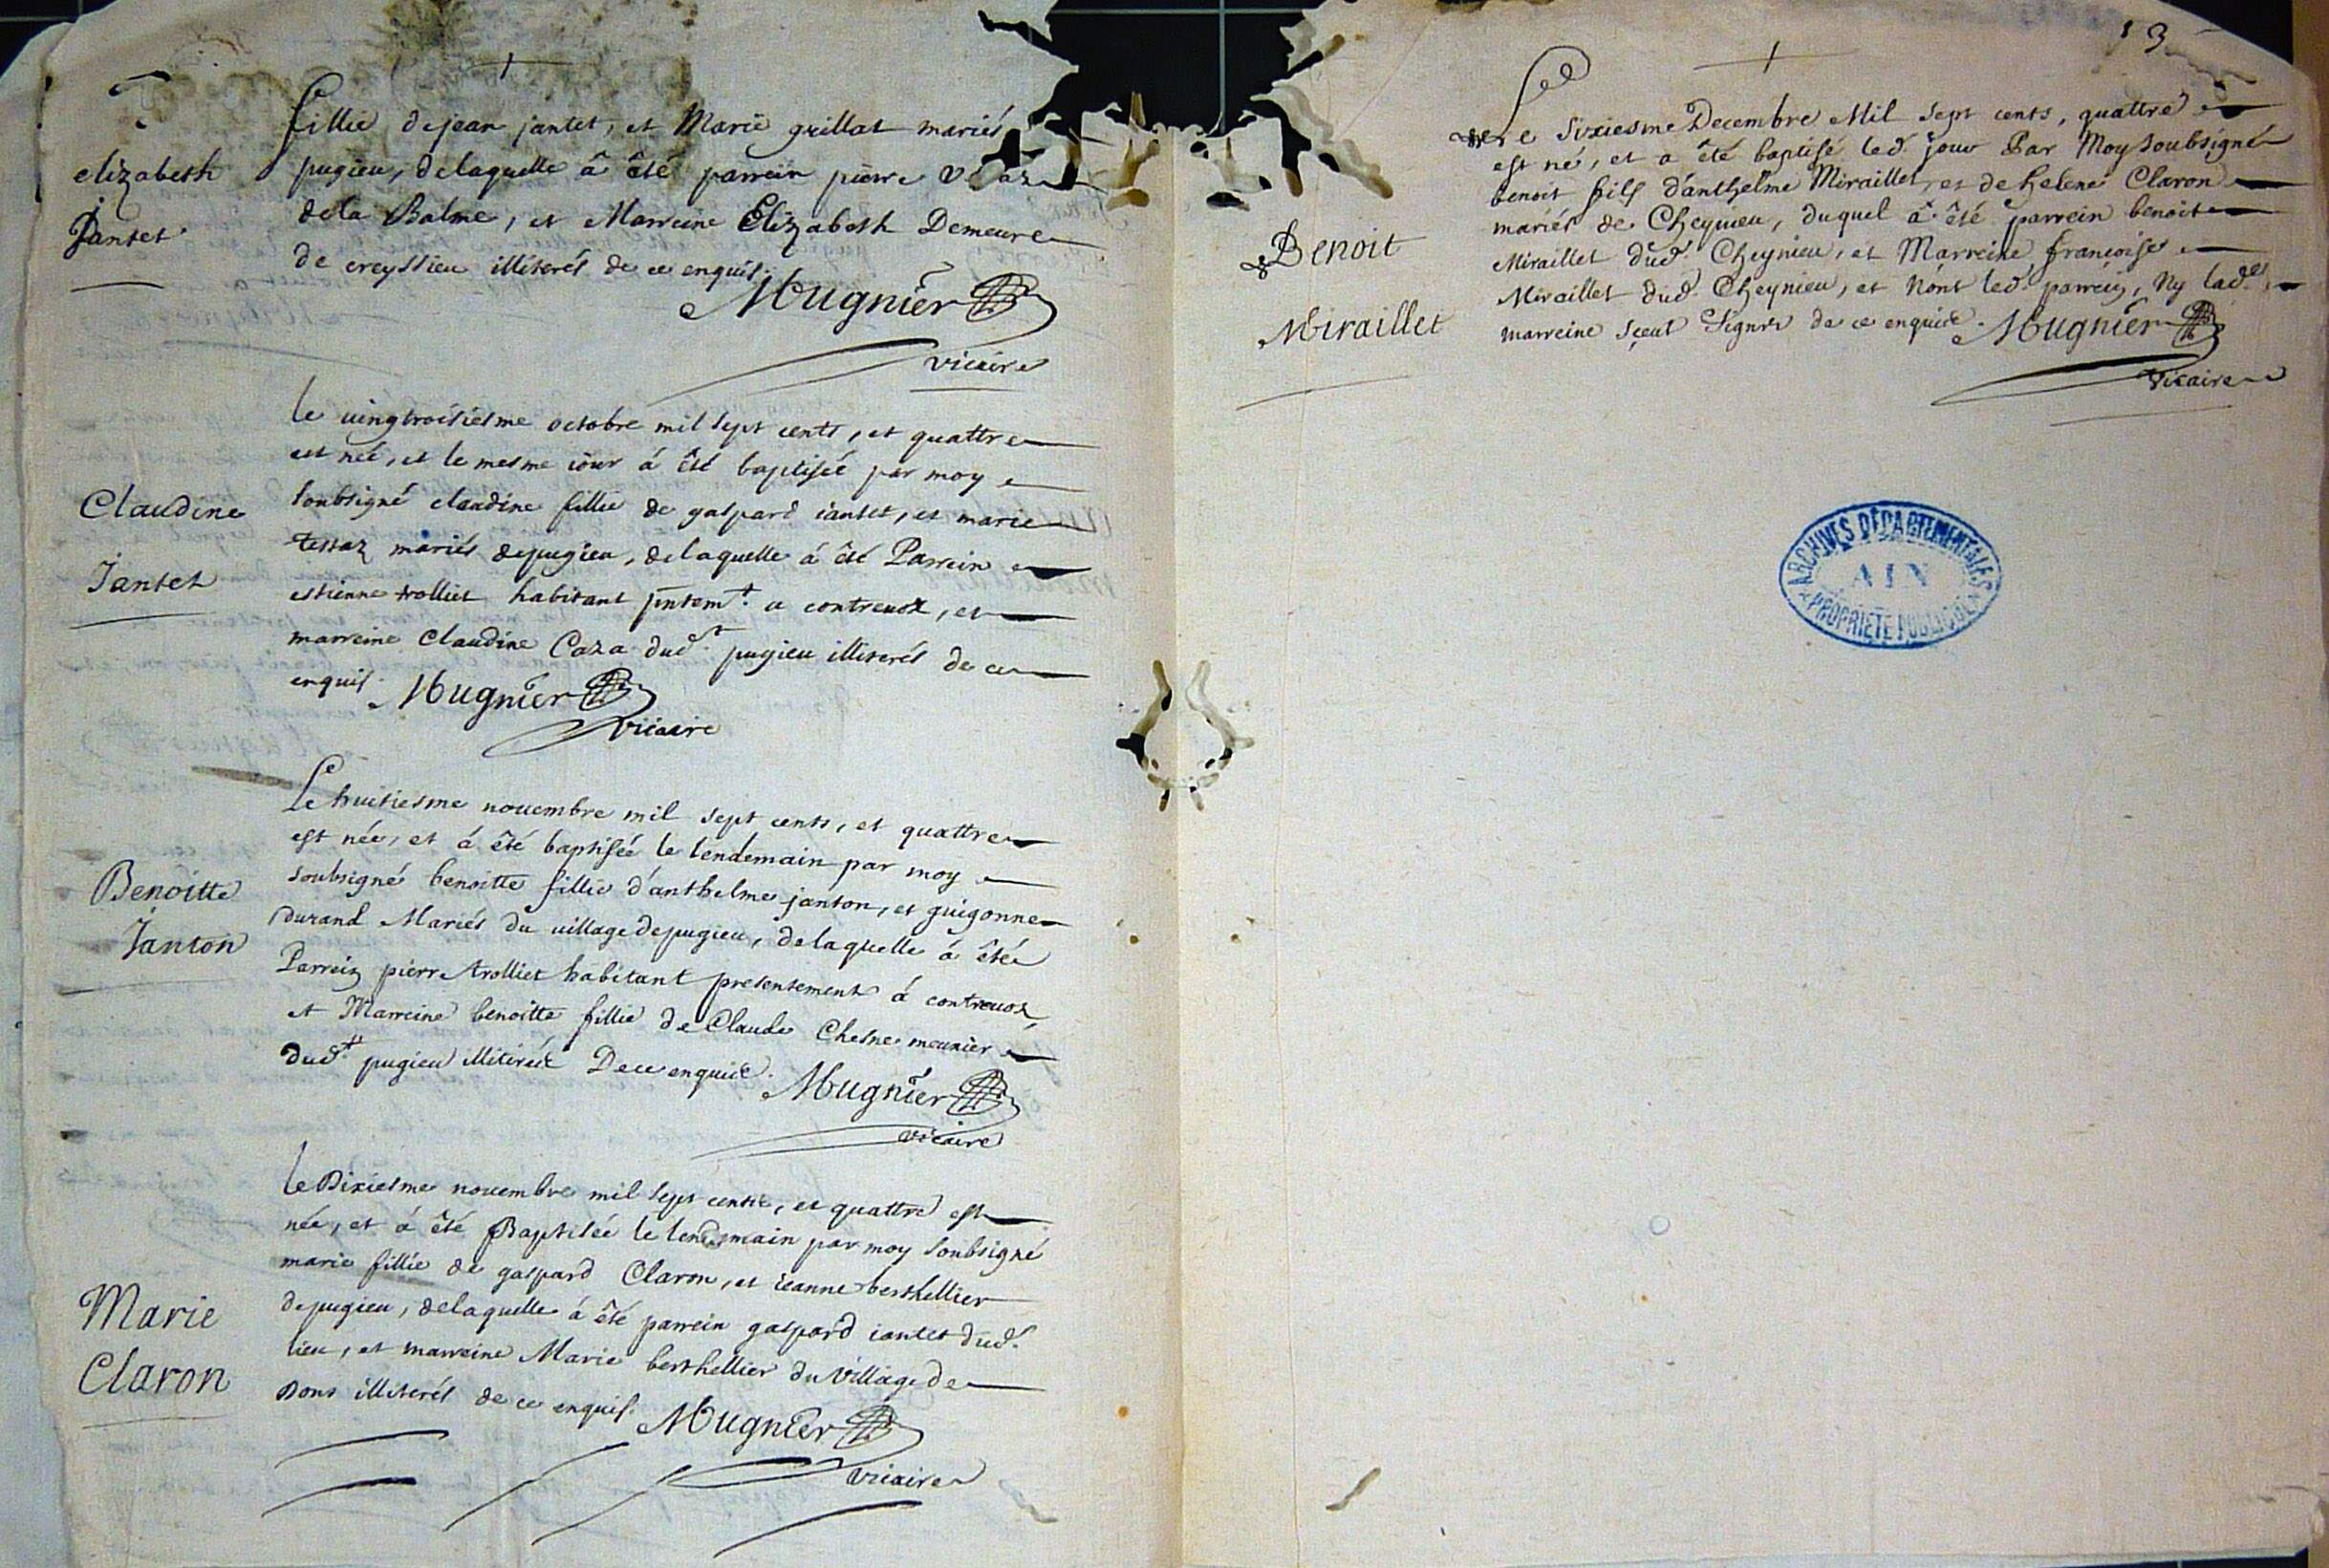 elizabeth
Jantet
fillie de jean jantet, et Marie grillat mariés
pugieu, delaquelle â êté parrein pierre
dela Balme, et Marreine Elizabeth Demeure
de creyssieu illiterés de ce enquis.
Mugnier
vicaire
Claudine
Jantet
le vingtroisiesme octobre mil sept cents, et quattre
est née, et le mesme iour á êté baptisée par moy
soubsigné claudine fillie de gaspard iantet, et marie
tessaz mariés depugieu, delaquelle á êté Parrein
estienne trolliet habitant pntemt. a contreuoz, et
marreine Claudine Caza dudt. pugieu illiterés de ce
enquis. Mugnier
vicaire
Benoitte
Janton
Le huitiesme nouembre mil sept cents, et quattre
est née, et á êté baptisée le lendemain par moy
soubsigné benoitte fillie d'anthelme janton, et guigonne
durand Mariés du village depugieu, delaquelle á êtée
Parrein pierre trolliet habitant presentement á contreuoz,
et Marreine benoitte fillie de Claude Chesne meunier
dudt. pugieu illiterés De ce enquis. Mugnier
vicaire
Marie
Claron
Le Dixiesme nouembre mil sept cents, et quattre est
née, et á êté Baptisée le lendemain par moy soubsigné
marie fillie de gaspard Claron, et ieanne berthellier
depugieu, delaquelle á êté parrein gaspard iantet dud.
lieu, et marreine Marie berthellier du village de
Dons illiterés de ce enquis. Mugnier
vicaire
13
Benoit
Miraillet
Le Sixiesme Decembre Mil sept cents, quattre
est né, et a êté baptisé led. jour Par Moy soubsigné
benoit fils d'anthelme Miraillet, et de helene Claron
mariés de Cheynieu, duquel â êté parrein benoit
Miraillet dud. Cheynieu, et Marreine francoise
Miraillet dud. Cheynieu, et N'ont led. parrein, Ny lad.
marreine sçeut signer de ce enquis. Mugnier
vicaire
ARCHIVES DÉPARTEMENTALES
AIN
PROPRIÉTÉ PUBLIQUE